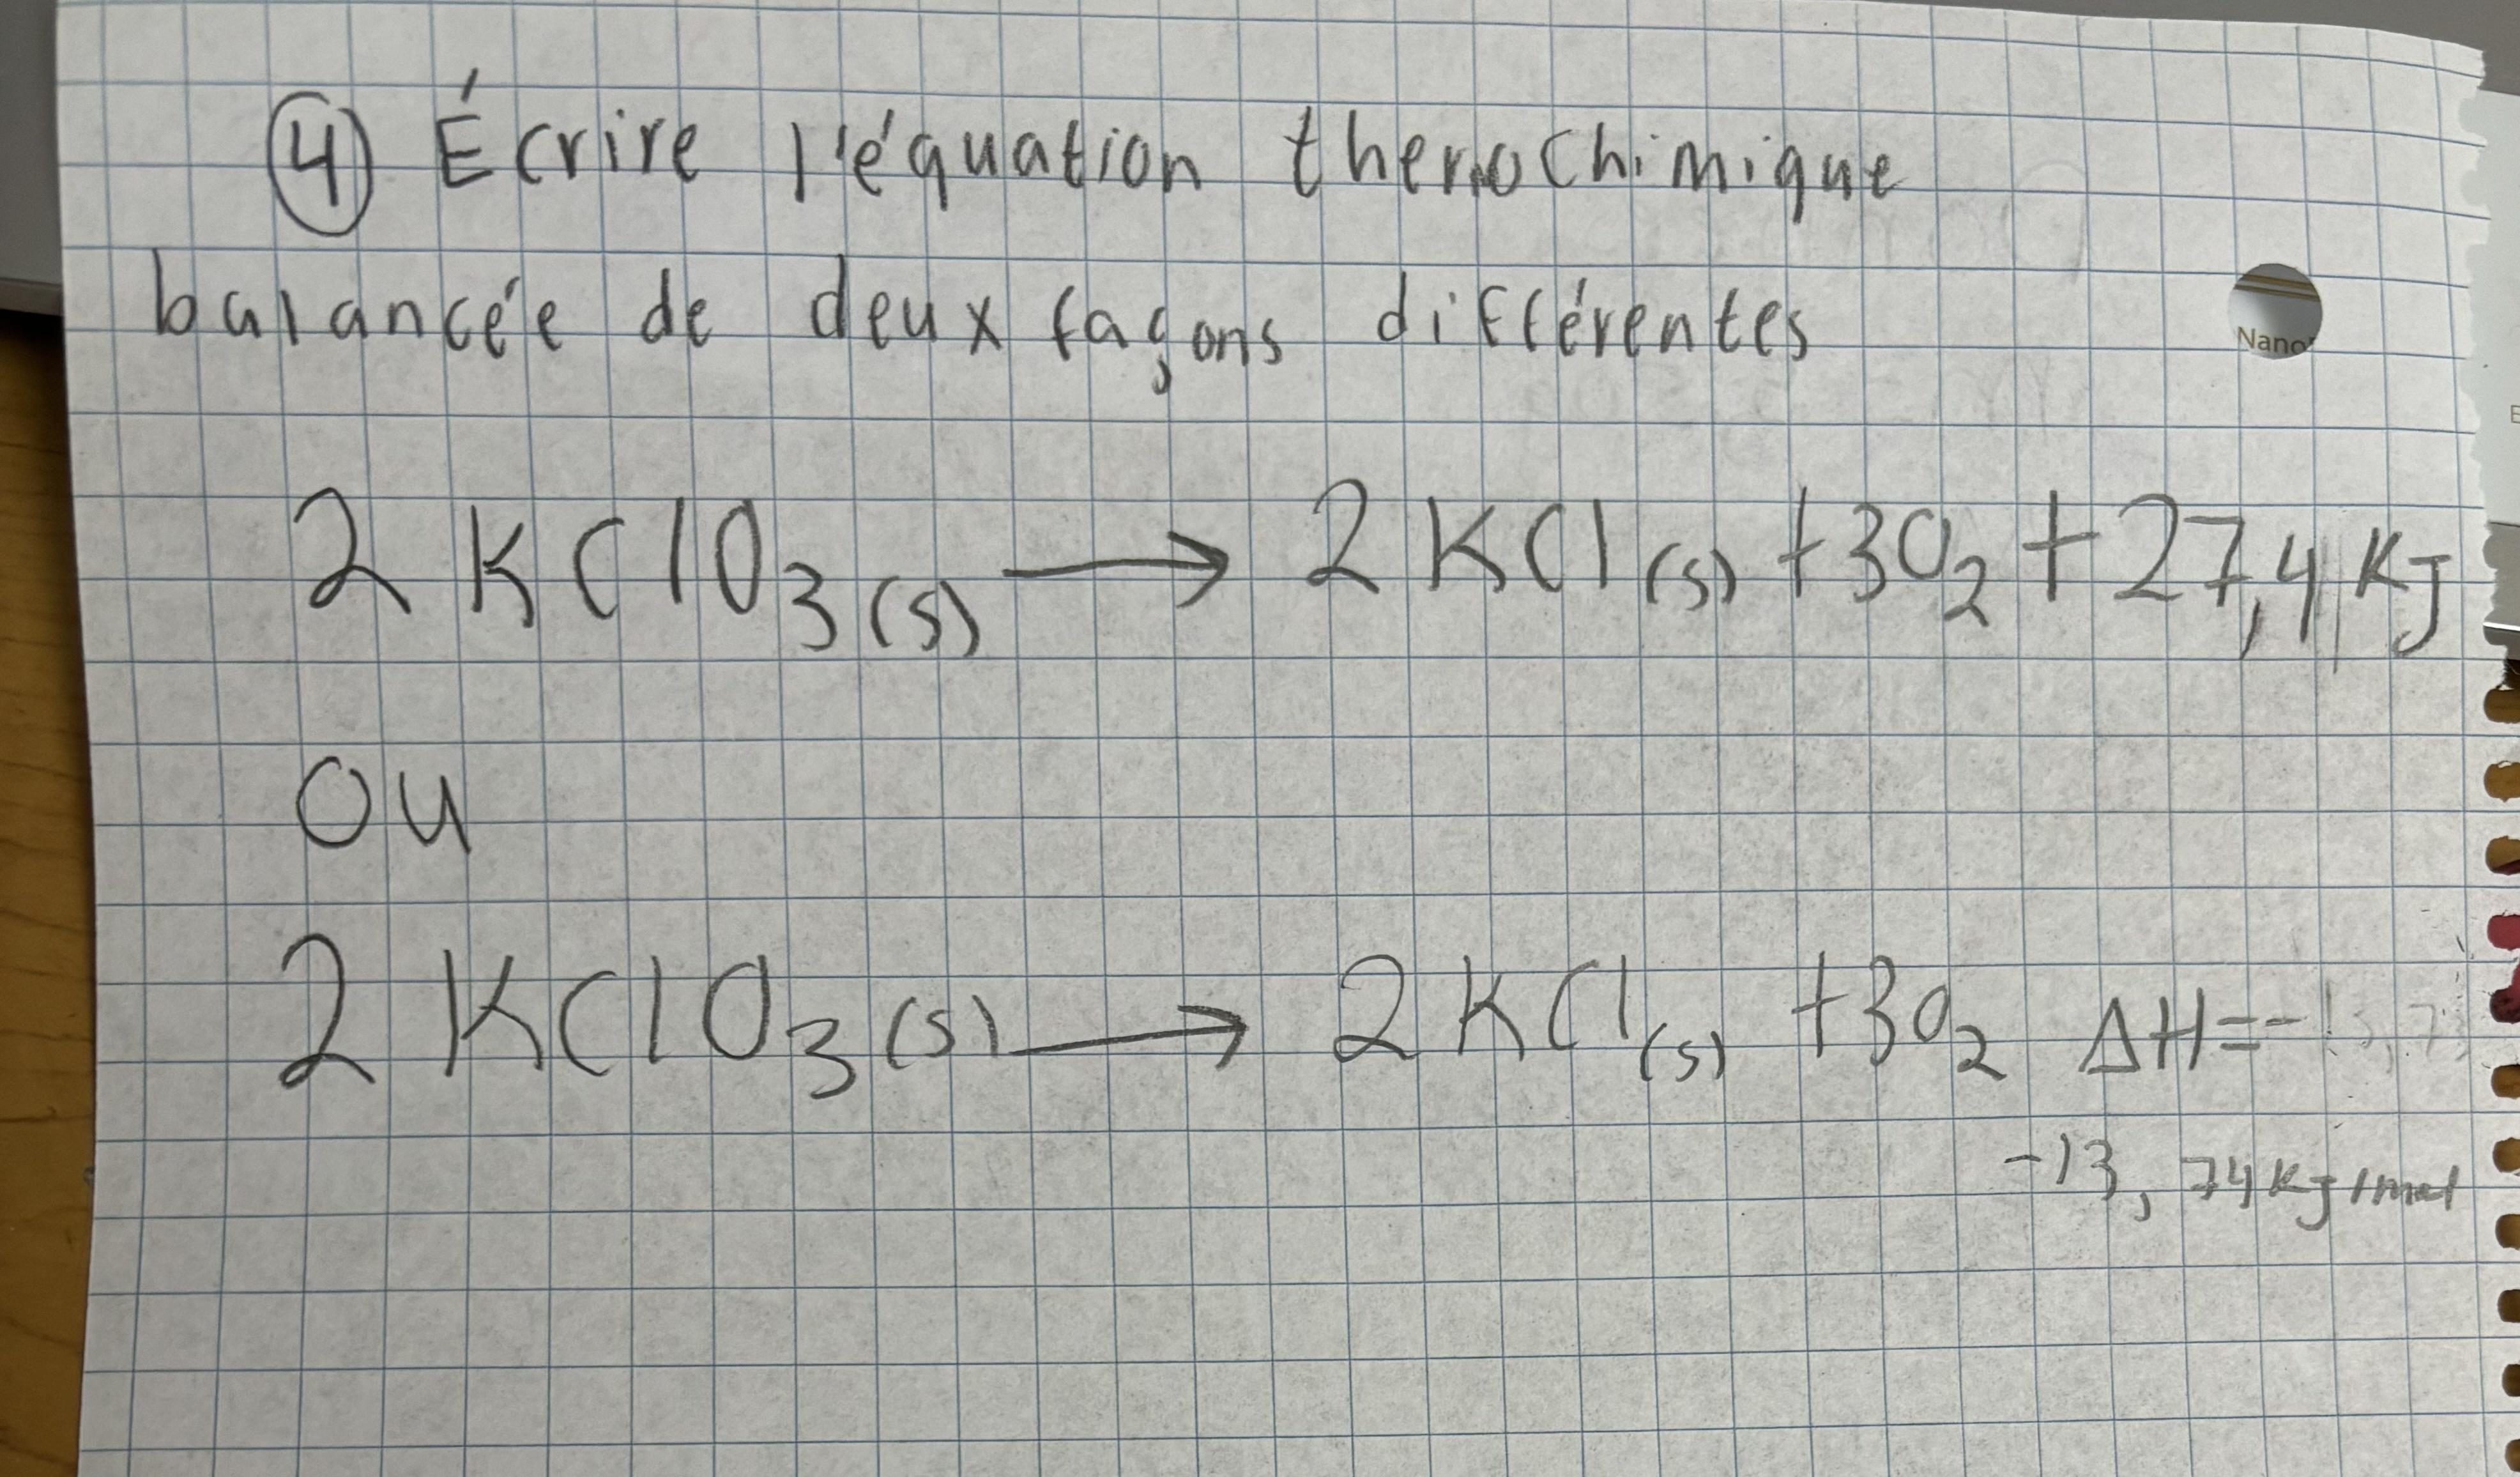 ④ Écrire l'équation thermochimique
balancée de deux façons différentes
Nano
2 KClO₃(s) → 2 KCl(s) + 3O₂ + 27,4 KJ
ou
2 KClO₃(s) → 2 KCl(s) + 3O₂ ΔH = -13,7
-13,74 KJ/mol